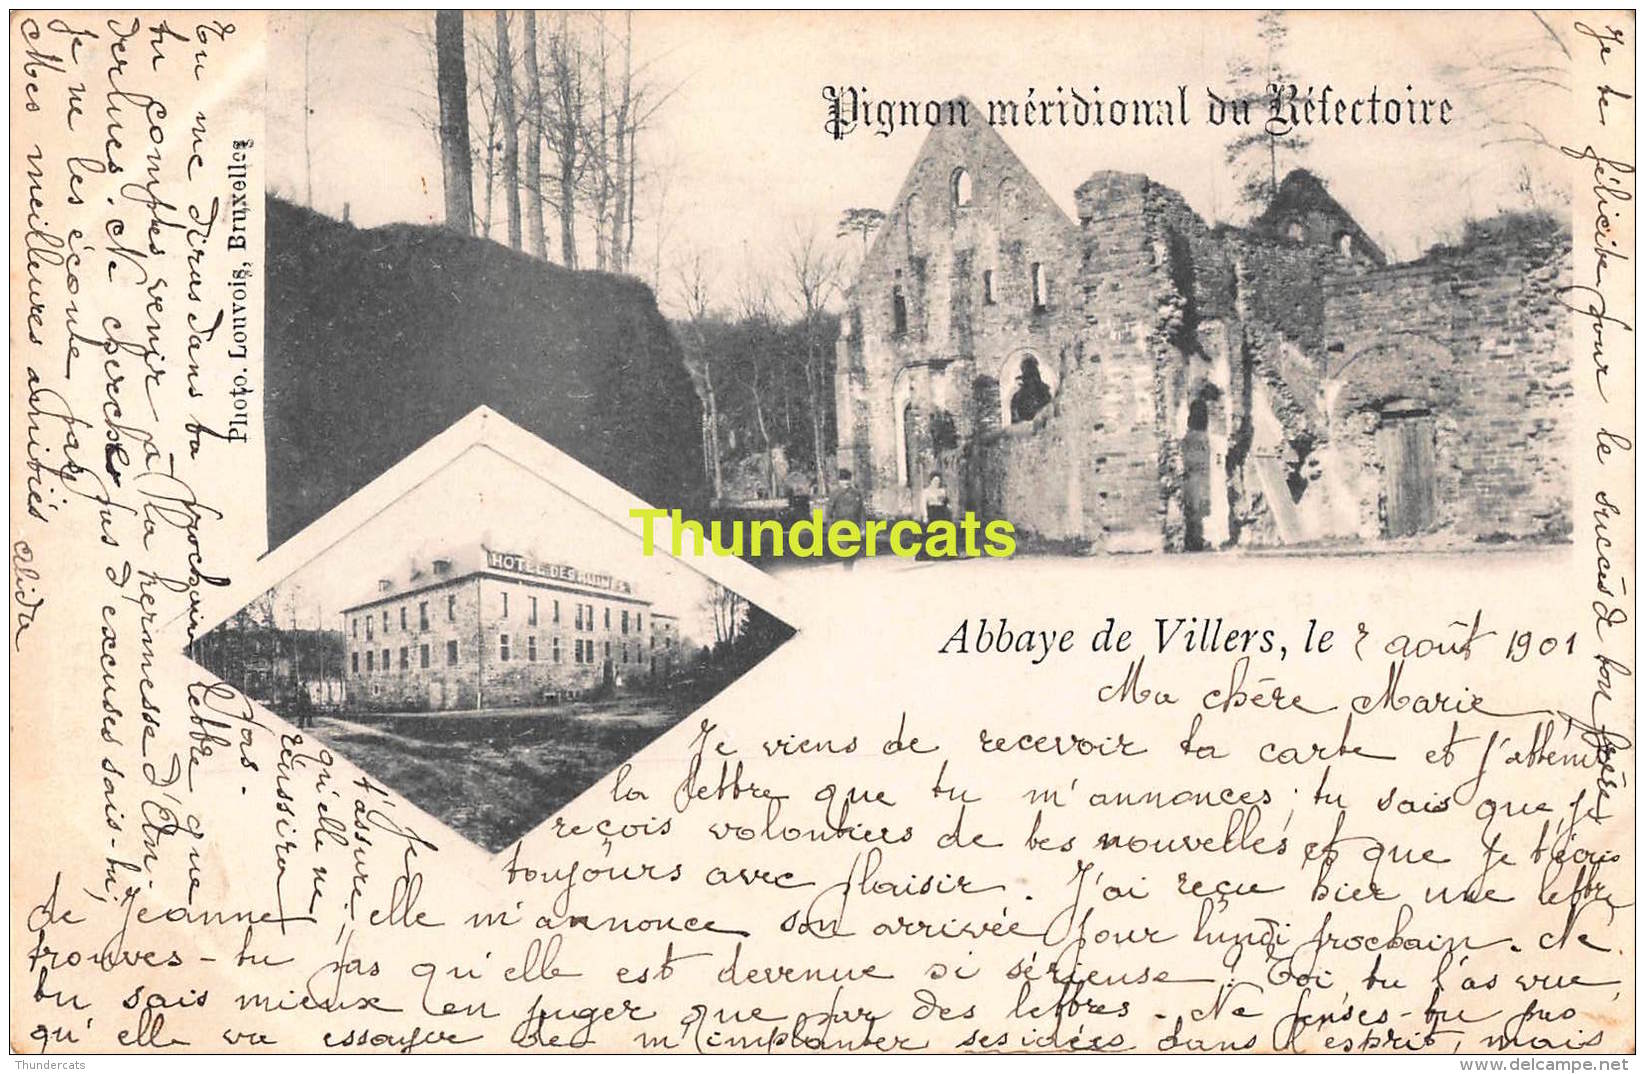 Pignon méridional du Réfectoire
Photo. Louvrois, Bruxelles
HOTEL DES RUINES
Thundercats
Abbaye de Villers, le 2 août 1901
Ma chère Marie,
Je viens de recevoir ta carte et j'attends
la lettre que tu m'annonces; tu sais que je
reçois volontiers de tes nouvelles et que je t'écris
toujours avec plaisir. J'ai reçu hier une lettre
de Jeanne, elle m'annonce son arrivée pour lundi prochain. Ne
trouves-tu pas qu'elle est devenue si sérieuse! Toi, tu l'as vue,
tu sais mieux en juger que par des lettres. Ne penses-tu pas
qu'elle va essayer de m'implanter ses idées dans l'esprit, mais
je
t'assure
qu'elle ne
réussira
pas.
Tu me diras dans ta prochaine lettre que
tu comptes venir à la kermesse d'An-
derlues. Ne cherche pas d'excuses sais-tu,
je ne les écoute pas
Mes meilleures amitiés Alida
Je te félicite pour le succès de ton frère
Thundercats
delcampe.net